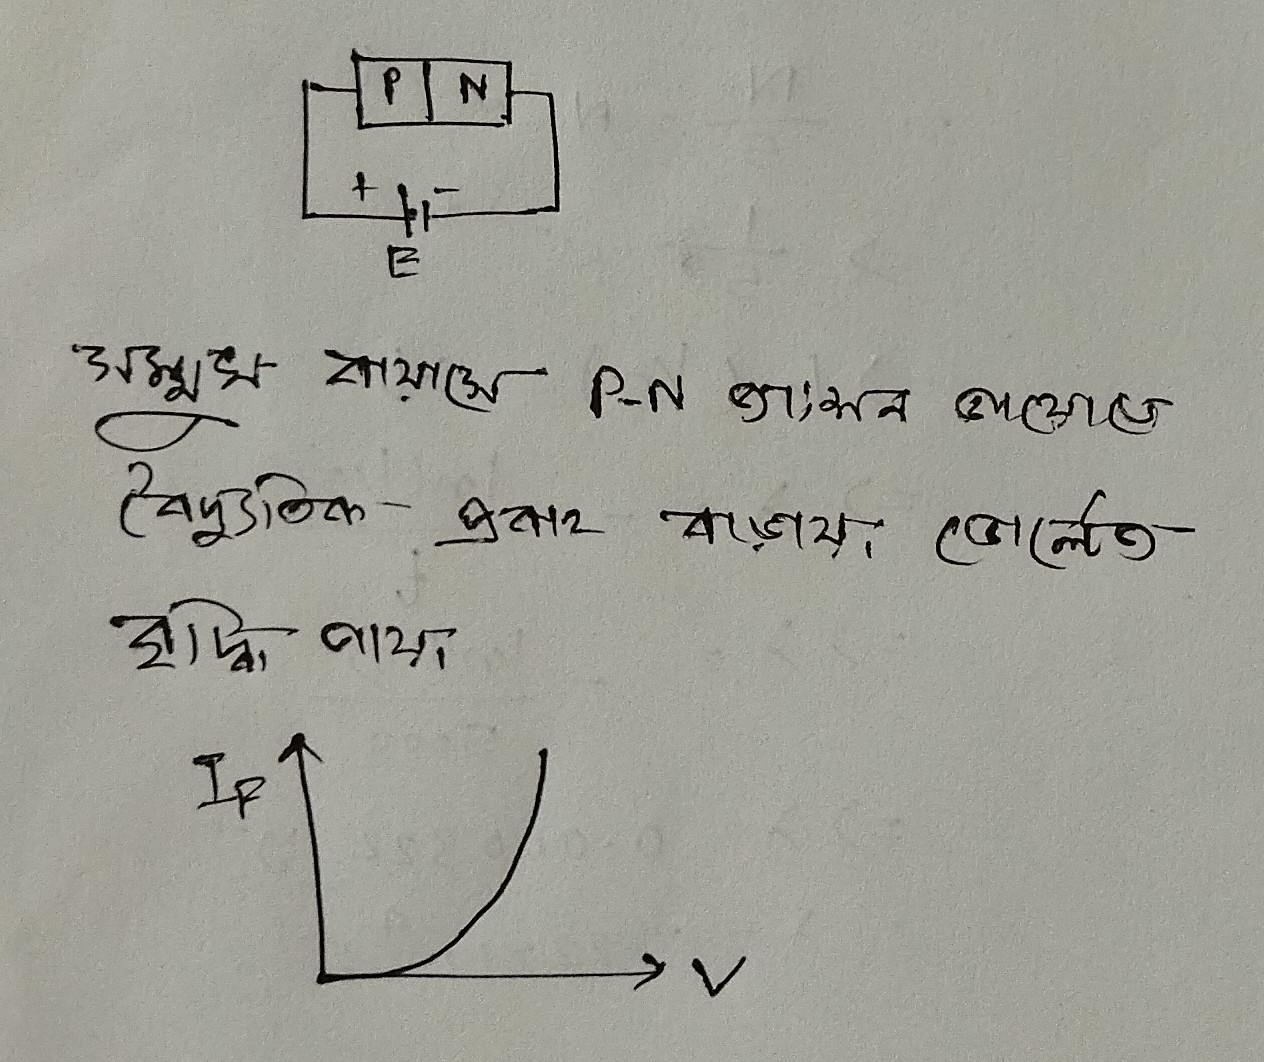 P N
+ -
E
সম্মুখ বায়াসে P-N জাংশন ডায়োডে
বৈদ্যুতিক প্রবাহ বাড়ায়। ভোল্টেজ
বৃদ্ধি পায়।
I_F
V